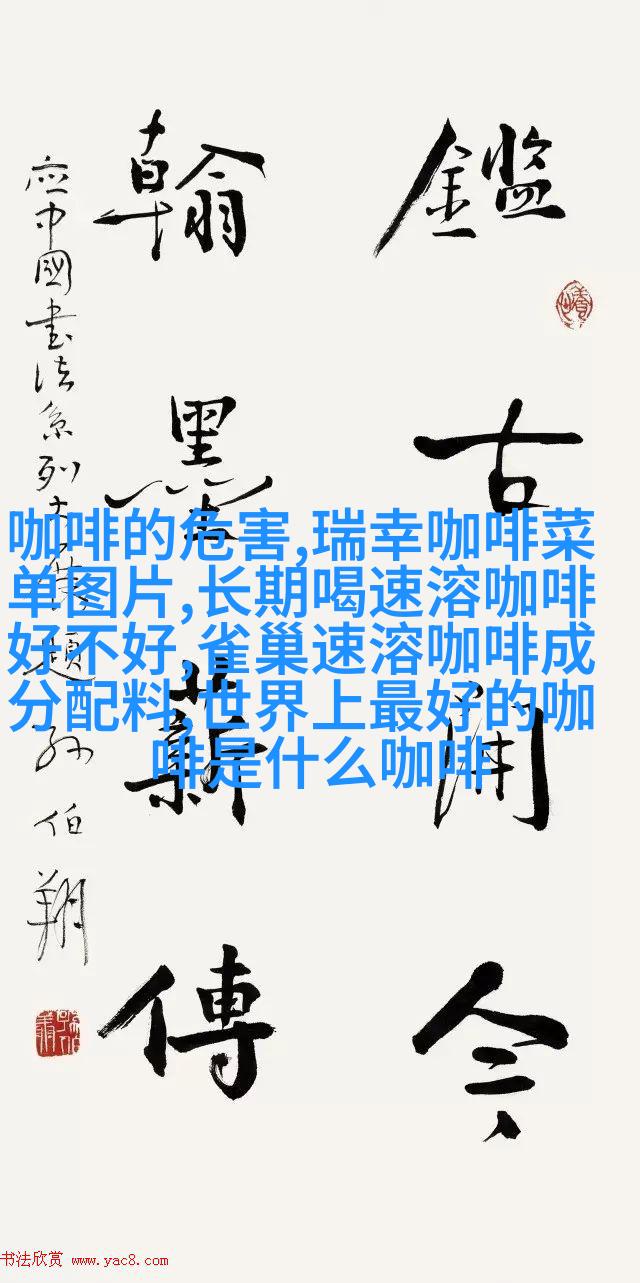 鑑古開今
翰墨薪傳
应中國書法系列大題孙伯翔
咖啡的危害,瑞幸咖啡菜
单图片,长期喝速溶咖啡
好不好,雀巢速溶咖啡成
分配料,世界上最好的咖
啡是什么咖啡
书法欣赏 www.yac8.com